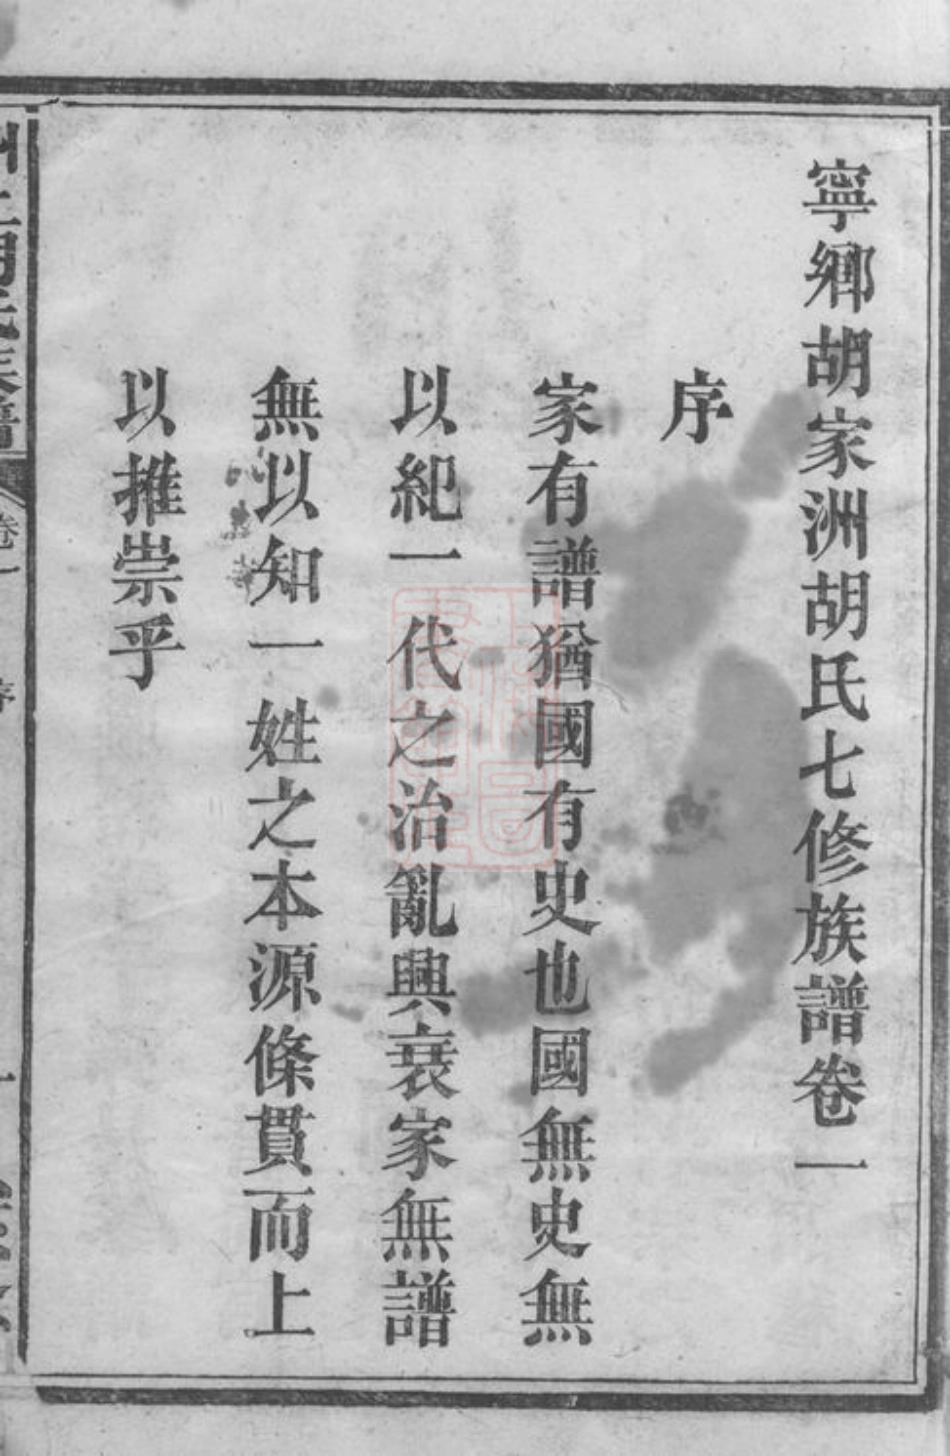 寧鄉胡家洲胡氏七修族譜卷一
序
家有譜猶國有史也國無史無
以紀一代之治亂興衰家無譜
無以知一姓之本源條貫而上
以推崇乎
胡氏族譜
卷一
序
一